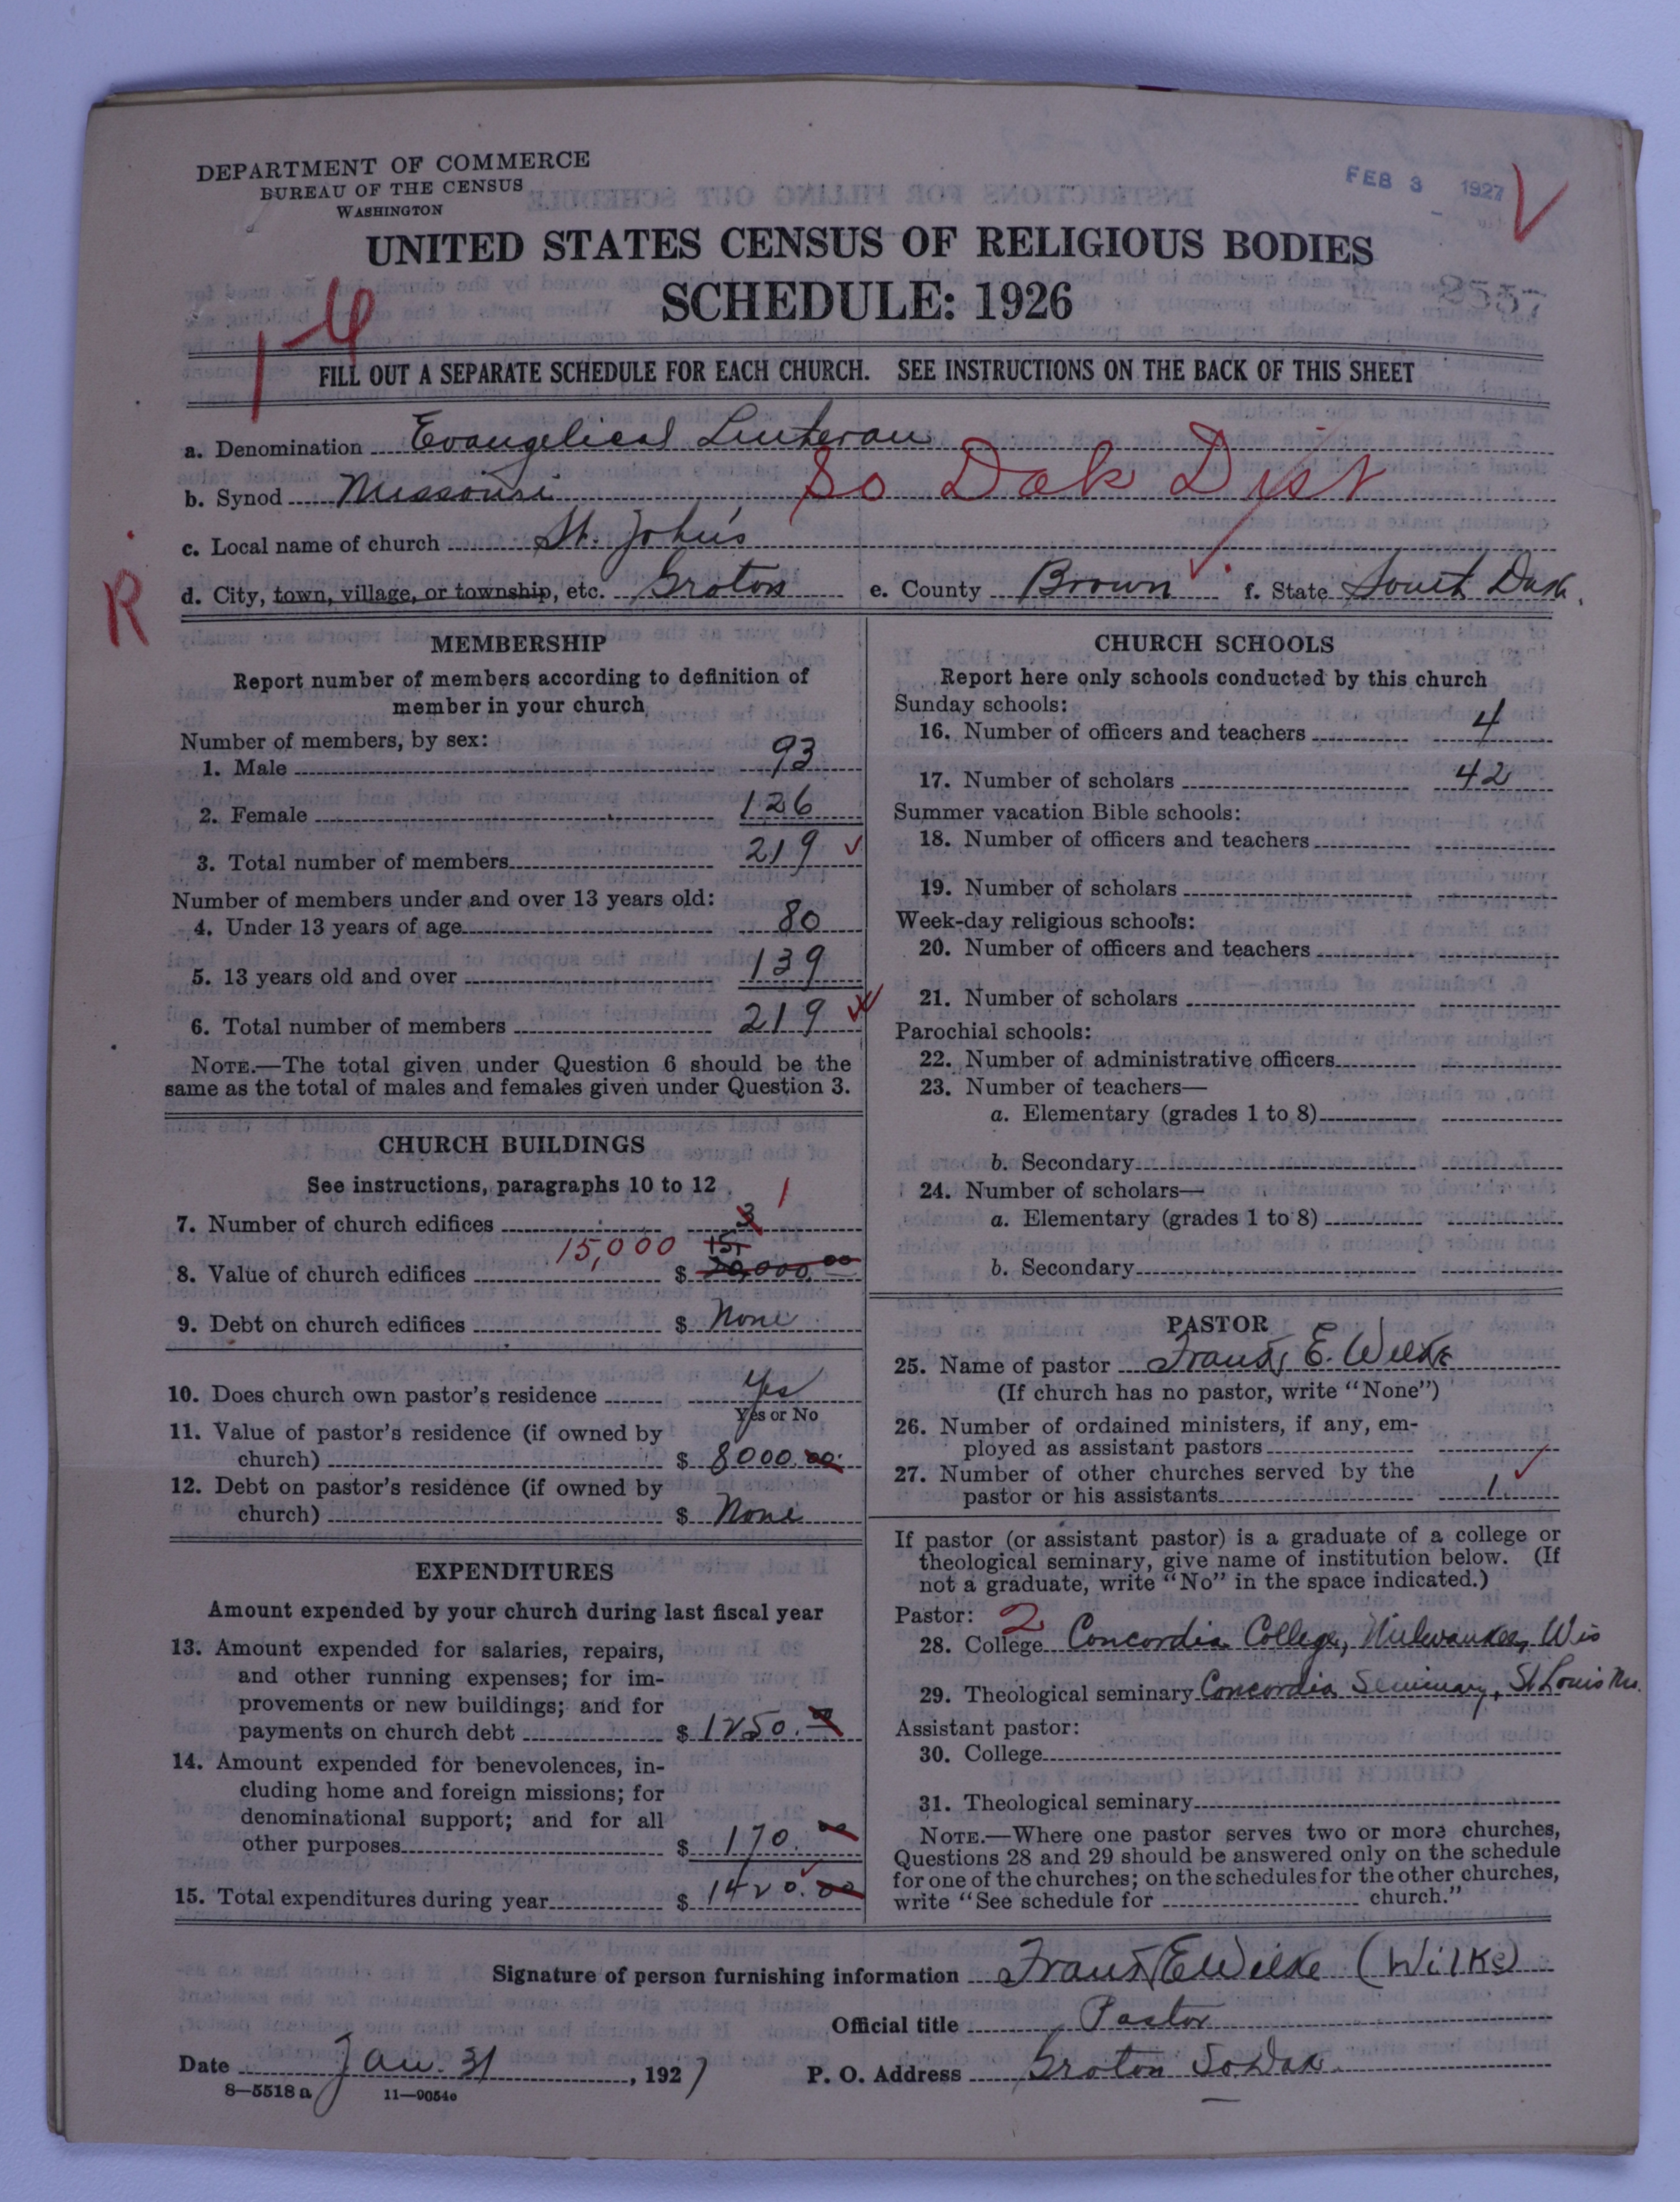 DEPARTMENT OF COMMERCE
BUREAU OF THE CENSUS
WASHINGTON
FEB 3 1927
UNITED STATES CENSUS OF RELIGIOUS BODIES
SCHEDULE: 1926
2557
FILL OUT A SEPARATE SCHEDULE FOR EACH CHURCH. SEE INSTRUCTIONS ON THE BACK OF THIS SHEET
a. Denomination Evangelical Lutheran
b. Synod Missouri So Dak Dist
c. Local name of church St. John's
R
d. City, town, village, or township, etc. Groton e. County Brown f. State South Dak.
MEMBERSHIP
Report number of members according to definition of
member in your church
Number of members, by sex:
1. Male 93
2. Female 126
3. Total number of members 219
Number of members under and over 13 years old:
4. Under 13 years of age 80
5. 13 years old and over 139
6. Total number of members 219
NOTE.—The total given under Question 6 should be the
same as the total of males and females given under Question 3.
CHURCH BUILDINGS
See instructions, paragraphs 10 to 12
7. Number of church edifices 3 1
15,000 15,
8. Value of church edifices $ 20,000.00
9. Debt on church edifices $ None
10. Does church own pastor's residence Yes
Yes or No
11. Value of pastor's residence (if owned by
church) $ 8000.00
12. Debt on pastor's residence (if owned by
church) $ None
EXPENDITURES
Amount expended by your church during last fiscal year
13. Amount expended for salaries, repairs,
and other running expenses; for im-
provements or new buildings; and for
payments on church debt $ 1250.
14. Amount expended for benevolences, in-
cluding home and foreign missions; for
denominational support; and for all
other purposes $ 170.00
15. Total expenditures during year $ 1420.00
CHURCH SCHOOLS
Report here only schools conducted by this church
Sunday schools:
16. Number of officers and teachers 4
17. Number of scholars 42
Summer vacation Bible schools:
18. Number of officers and teachers
19. Number of scholars
Week-day religious schools:
20. Number of officers and teachers
21. Number of scholars
Parochial schools:
22. Number of administrative officers
23. Number of teachers—
a. Elementary (grades 1 to 8)
b. Secondary
24. Number of scholars—
a. Elementary (grades 1 to 8)
b. Secondary
PASTOR
25. Name of pastor Franz E. Wilke
(If church has no pastor, write "None")
26. Number of ordained ministers, if any, em-
ployed as assistant pastors
27. Number of other churches served by the
pastor or his assistants 1
If pastor (or assistant pastor) is a graduate of a college or
theological seminary, give name of institution below. (If
not a graduate, write "No" in the space indicated.)
Pastor: 2
28. College Concordia College, Milwaukee, Wis
29. Theological seminary Concordia Seminary, St Louis Mo.
Assistant pastor:
30. College
31. Theological seminary
NOTE.—Where one pastor serves two or more churches,
Questions 28 and 29 should be answered only on the schedule
for one of the churches; on the schedules for the other churches,
write "See schedule for church."
Signature of person furnishing information Franz E Wilke (Wilke)
Official title Pastor
Date Jan. 31, 1927 P. O. Address Groton So. Dak.
8—5518 a 11—9054a